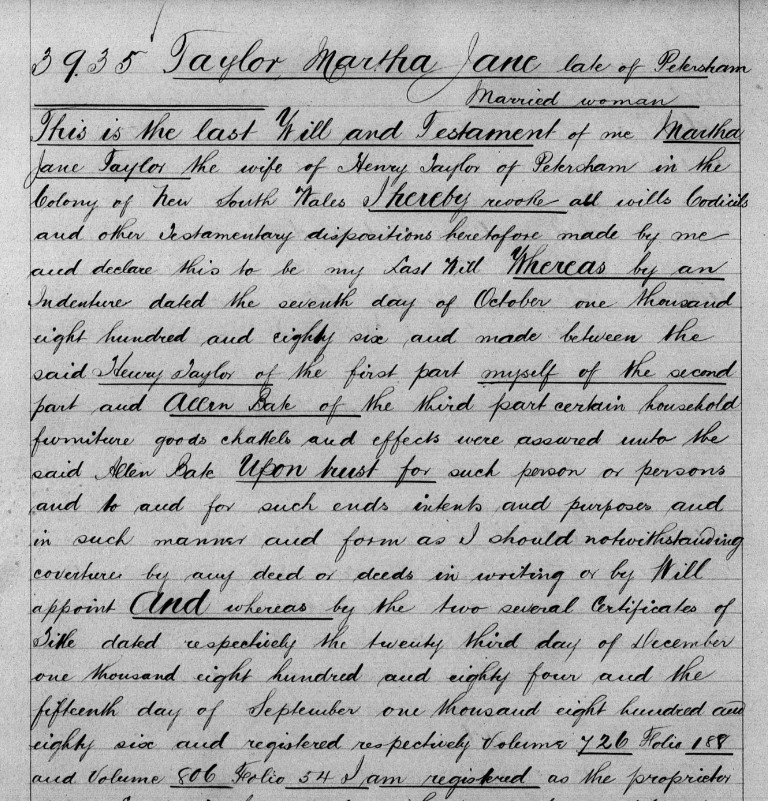 3935 Taylor Martha Jane late of Petersham
Married woman
This is the last Will and Testament of me Martha
Jane Taylor the wife of Henry Taylor of Petersham in the
Colony of New South Wales I hereby revoke all wills Codicils
and other Testamentary dispositions heretofore made by me
and declare this to be my Last Will Whereas by an
Indenture dated the seventh day of October one thousand
eight hundred and eighty six and made between the
said Henry Taylor of the first part myself of the second
part and Allen Bate of the third part certain household
furniture goods chattels and effects were assured unto the
said Allen Bate Upon trust for such person or persons
and to and for such ends intents and purposes and
in such manner and form as I should notwithstanding
coverture by any deed or deeds in writing or by Will
appoint And whereas by the two several Certificates of
Title dated respectively the twenty third day of December
one thousand eight hundred and eighty four and the
fifteenth day of September one thousand eight hundred and
eighty six and registered respectively Volume 726 Folio 188
and Volume 806 Folio 54 I am registered as the proprietor